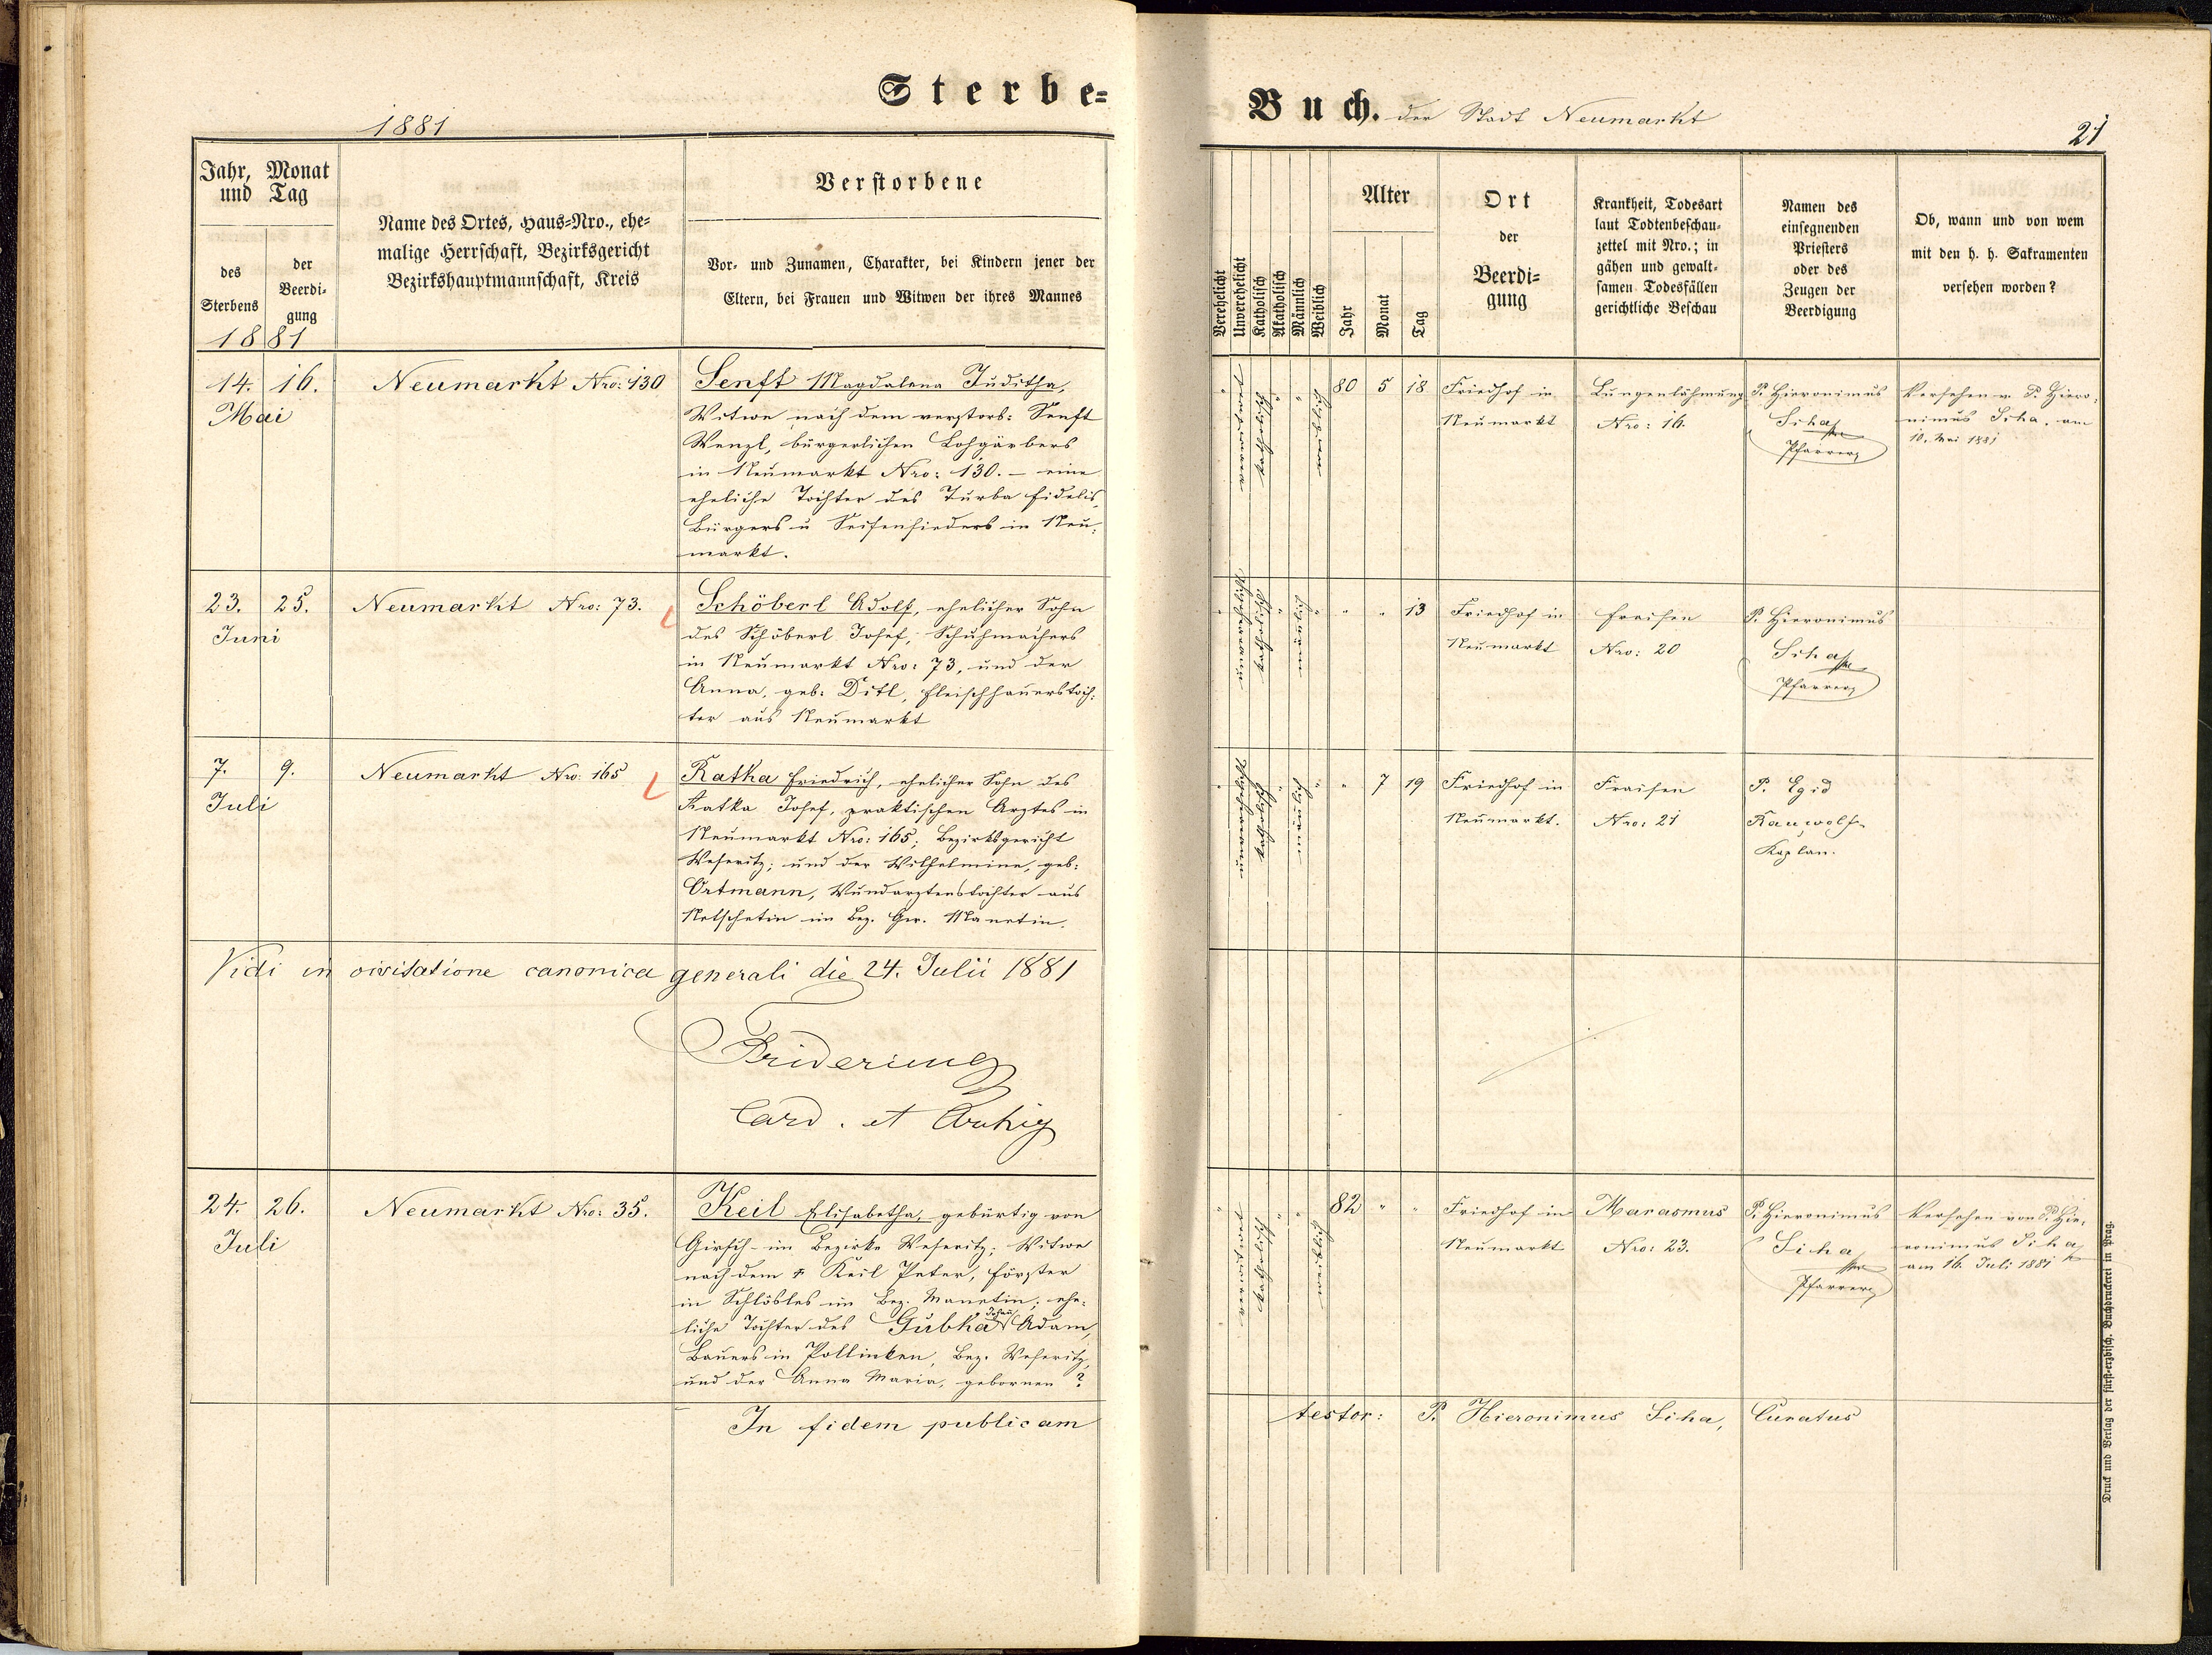 Sterbe=
1881
Jahr, Monat
und Tag
des
Sterbens
der
Beerdi-
gung
1881
Name des Ortes, Haus=Nro., ehe=
malige Herrschaft, Bezirksgericht
Bezirkshauptmannschaft, Kreis
Verstorbene
Vor- und Zunamen, Charakter, bei Kindern jener der
Eltern, bei Frauen und Witwen der ihres Mannes
14. 16.
Mai
Neumarkt Nro: 130
Senft Magdalena Juditha,
Witwe nach dem verstorb: Senft
Wenzl, bürgerlichen Lohgärbers
in Neumarkt Nro: 130. – eine
eheliche Tochter des Turba Fidelis,
Bürgers u Seifensieders in Neu:
markt.
23. 25.
Juni
Neumarkt Nro: 73.
Schöberl Adolf, ehelicher Sohn
des Schöberl Josef, Schuhmachers
in Neumarkt Nro: 73, und der
Anna, geb: Ditl, Fleischhauerstoch:
ter aus Neumarkt
7. 9.
Juli
Neumarkt Nro: 165
Ratka Friedrich, ehelicher Sohn des
Ratka Josef, praktischen Arztes in
Neumarkt Nro: 165; Bezirksgericht
Weseritz; und der Wilhelmine, geb:
Ortmann, Wundarztenstochter aus
Netschetin im Bez. Ger. Manetin.
Vidi in visitatione canonica generali die 24. Julii 1881
Fridericus
Card. et
24. 26.
Juli
Neumarkt Nro: 35.
Keil Elisabetha, gebürtig von
Girsch im Bezirke Weseritz; Witwe
nach dem † Keil Peter, Förster
in Schlösles im Bez. Manetin; ehe:
liche Tochter des Gubka Johann Adam,
Bauers in Pollinken, Bez. Weseritz,
und der Anna Maria, gebornen ?
In fidem publicam
Buch. der Stadt Neumarkt
21
Verehelicht
Unverehelicht
Katholisch
Akatholisch
Männlich
Weiblich
Alter
Jahr
Monat
Tag
Ort
der
Beerdi=
gung
Krankheit, Todesart
laut Todtenbeschau-
zettel mit Nro.; in
gähen und gewalt-
samen Todesfällen
gerichtliche Beschau
Namen des
einsegnenden
Priesters
oder des
Zeugen der
Beerdigung
Ob, wann und von wem
mit den h. h. Sakramenten
versehen worden?
" verwitwet katholisch " " weiblich 80 5 18
Friedhof in
Neumarkt
Lungenlähmung
Nro: 16.
P. Hieronimus
Siha
Pfarrer
Versehen v. P. Hiero:
nimus Siha. am
10. Mai 1881
" katholisch " männlich " " " 13
Friedhof in
Neumarkt
Fraisen
Nro: 20
P. Hieronimus
Siha
Pfarrer
" katholisch " männlich " " 7 19
Friedhof in
Neumarkt.
Fraisen
Nro: 21
P. Egid
Rauwolf
Kaplan.
" verwitwet katholisch " " weiblich 82 " "
Friedhof in
Neumarkt
Marasmus
Nro: 23.
P. Hieronimus
Siha
Pfarrer
Versehen von P. Hie:
ronimus Siha
am 16. Juli 1881
testor: P. Hieronimus Siha, Curatus
Druck und Verlag der fürst-erzbisch. Buchdruckerei in Prag.